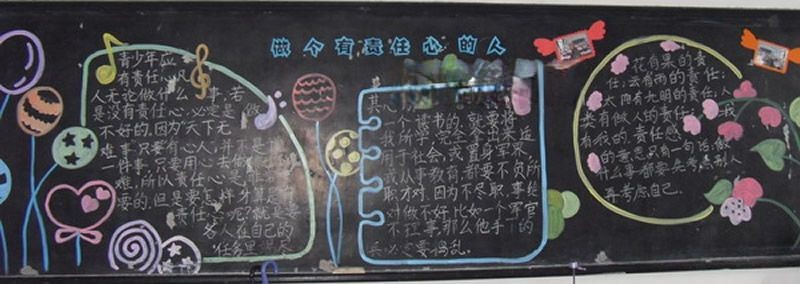 做个有责任心的人
青少年应
有责任心,凡
人无论做什么事,若
是没有责任心,必定是做
不好的,因为天下无
难事,只要有心人,并不是
一件事,只要用心去做
难,所以责任心是非
要的,但是要怎样才算是有
责任心呢?就是要
各人在自己的
任务里
其心
一个读书的,就要将
我所学,完全拿出来运
用于社会,或置身军界
或从事教育,都要不负所
职才对,因为不尽职,事继
对做不好,比如一个军官
不扛事,那么他手下的
兵必定要祸乱.
花有果的责
任;云有雨的责任;
太阳有光明的责任;人
类有做人的责任;我
有我的责任感
的意思只有一句话:做
什么事都要先考虑别人
再考虑自己.